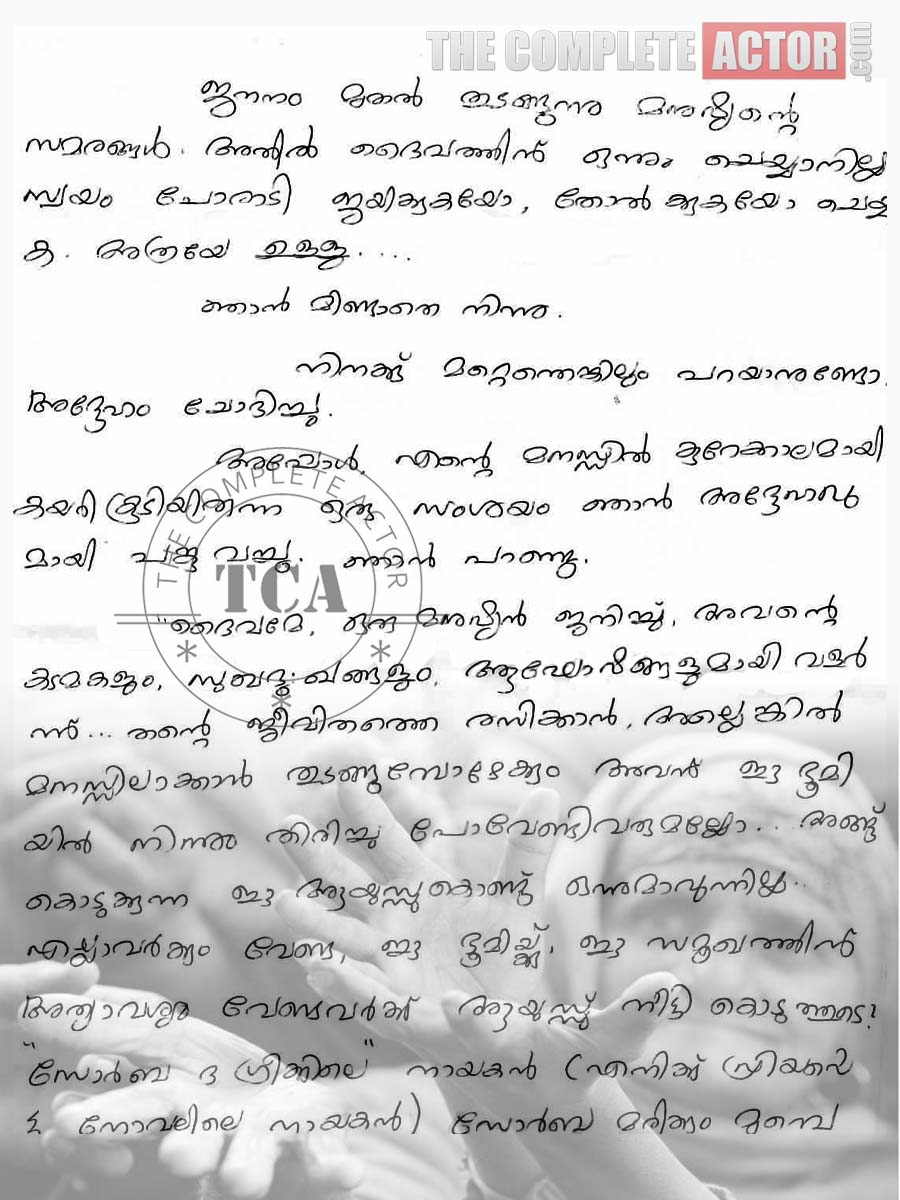 THE COMPLETE ACTOR .com
ജനനം മുതൽ തുടങ്ങുന്നു മനുഷ്യന്റെ
സമരങ്ങൾ. അതിൽ ദൈവത്തിന് ഒന്നും ചെയ്യാനില്ല
സ്വയം പോരാടി ജയിക്കുകയോ, തോൽക്കുകയോ ചെയ്യു
ക. അത്രയേ ഉള്ളൂ.....
ഞാൻ മിണ്ടാതെ നിന്നു.
നിനക്ക് മറ്റെന്തെങ്കിലും പറയാനുണ്ടോ.
അദ്ദേഹം ചോദിച്ചു.
അപ്പോൾ, എന്റെ മനസ്സിൽ കുറേക്കാലമായി
കയറികൂടിയിരുന്ന ഒരു സംശയം ഞാൻ അദ്ദേഹവു
മായി പങ്കു വച്ചു. ഞാൻ പറഞ്ഞു.
THE COMPLETE ACTOR
TCA
"ദൈവമേ, ഒരു മനുഷ്യൻ ജനിച്ച്, അവന്റെ
കടമകളും, സുഖദുഃഖങ്ങളും, ആഘോഷങ്ങളുമായി വളർ
ന്ന്... തന്റെ ജീവിതത്തെ രസിക്കാൻ, അല്ലെങ്കിൽ
മനസ്സിലാക്കാൻ തുടങ്ങുമ്പോഴേക്കും അവന് ഈ ഭൂമി
യിൽ നിന്നും തിരിച്ചു പോവേണ്ടിവരുമല്ലോ... അങ്ങ്
കൊടുക്കുന്ന ഈ ആയുസ്സുകൊണ്ട് ഒന്നുമാവുന്നില്ല..
എല്ലാവർക്കും വേണ്ട, ഈ ഭൂമിയ്ക്ക്, ഈ സമൂഹത്തിന്
അത്യാവശ്യം വേണ്ടവർക്ക് ആയുസ്സ് നീട്ടി കൊടുത്തൂടെ?
"സോർബ ദ ഗ്രീക്കിലെ" നായകൻ (എനിക്ക് പ്രിയപ്പെ
ട്ട നോവലിലെ നായകൻ) സോർബ മരിക്കും മുമ്പെ